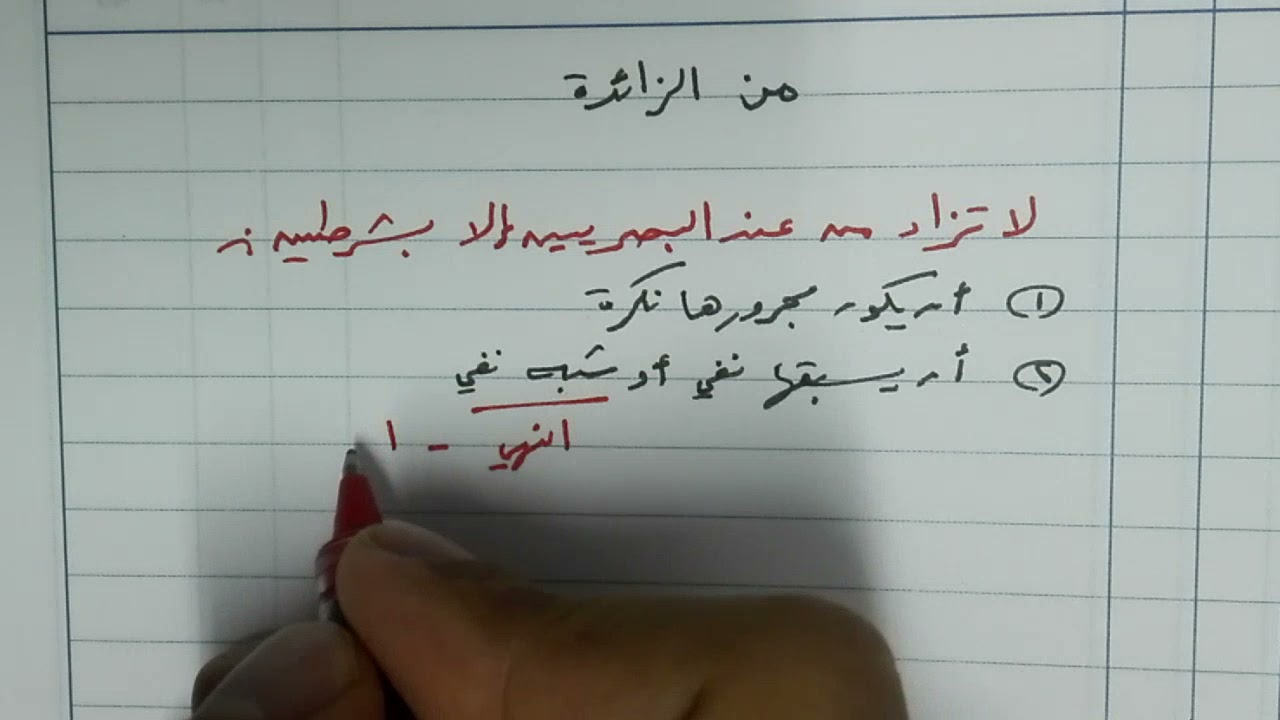 من الزائدة
لا تزاد من عند البصريين إلا بشرطين :
① أن يكون مجرورها نكرة
② أن يسبقها نفي أو شبه نفي
النهي - ا